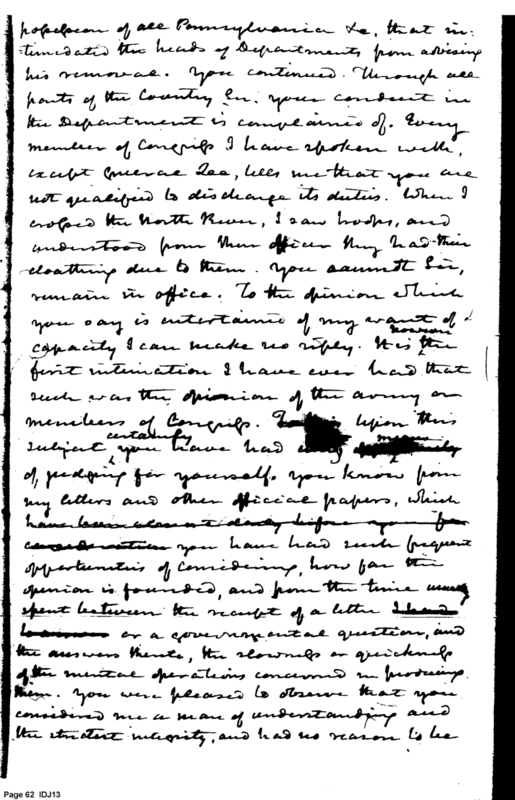 population of all Pennsylvania &c, that in=
timidated the heads of Departments from advising
his removal. You continued. Through all
parts of the Country Sir. your conduct in
the Department is complained of. Every
member of Congress I have spoken with,
except General Lee, tells me that you are
not qualified to discharge its duties. When I
crossed the North River, I saw troops, and
understood from their officer they had their
cloathing due to them. You cannot Sir,
remain in office. To the opinion which
you say is entertained of my want of
capacity I can make no reply. It is however the
first intimation I have ever had that
such was the opinion of the army or
members of Congress. upon this
subject, certainly you have had means
of judging for yourself. You know from
my letters and other official papers, which
have been almost daily before you for
consideration you have had such frequent
opportunities of considering, how far the
opinion is founded, and from the time
spent between the receipt of a letter I had
or a governmental question, and
the answers thereto, the slowness or quickness
of the mental operations concerned in producing
them. You were pleased to observe that you
considered me a man of understanding and
the strictest integrity, and had no reason to be
Page 62 IDJ13